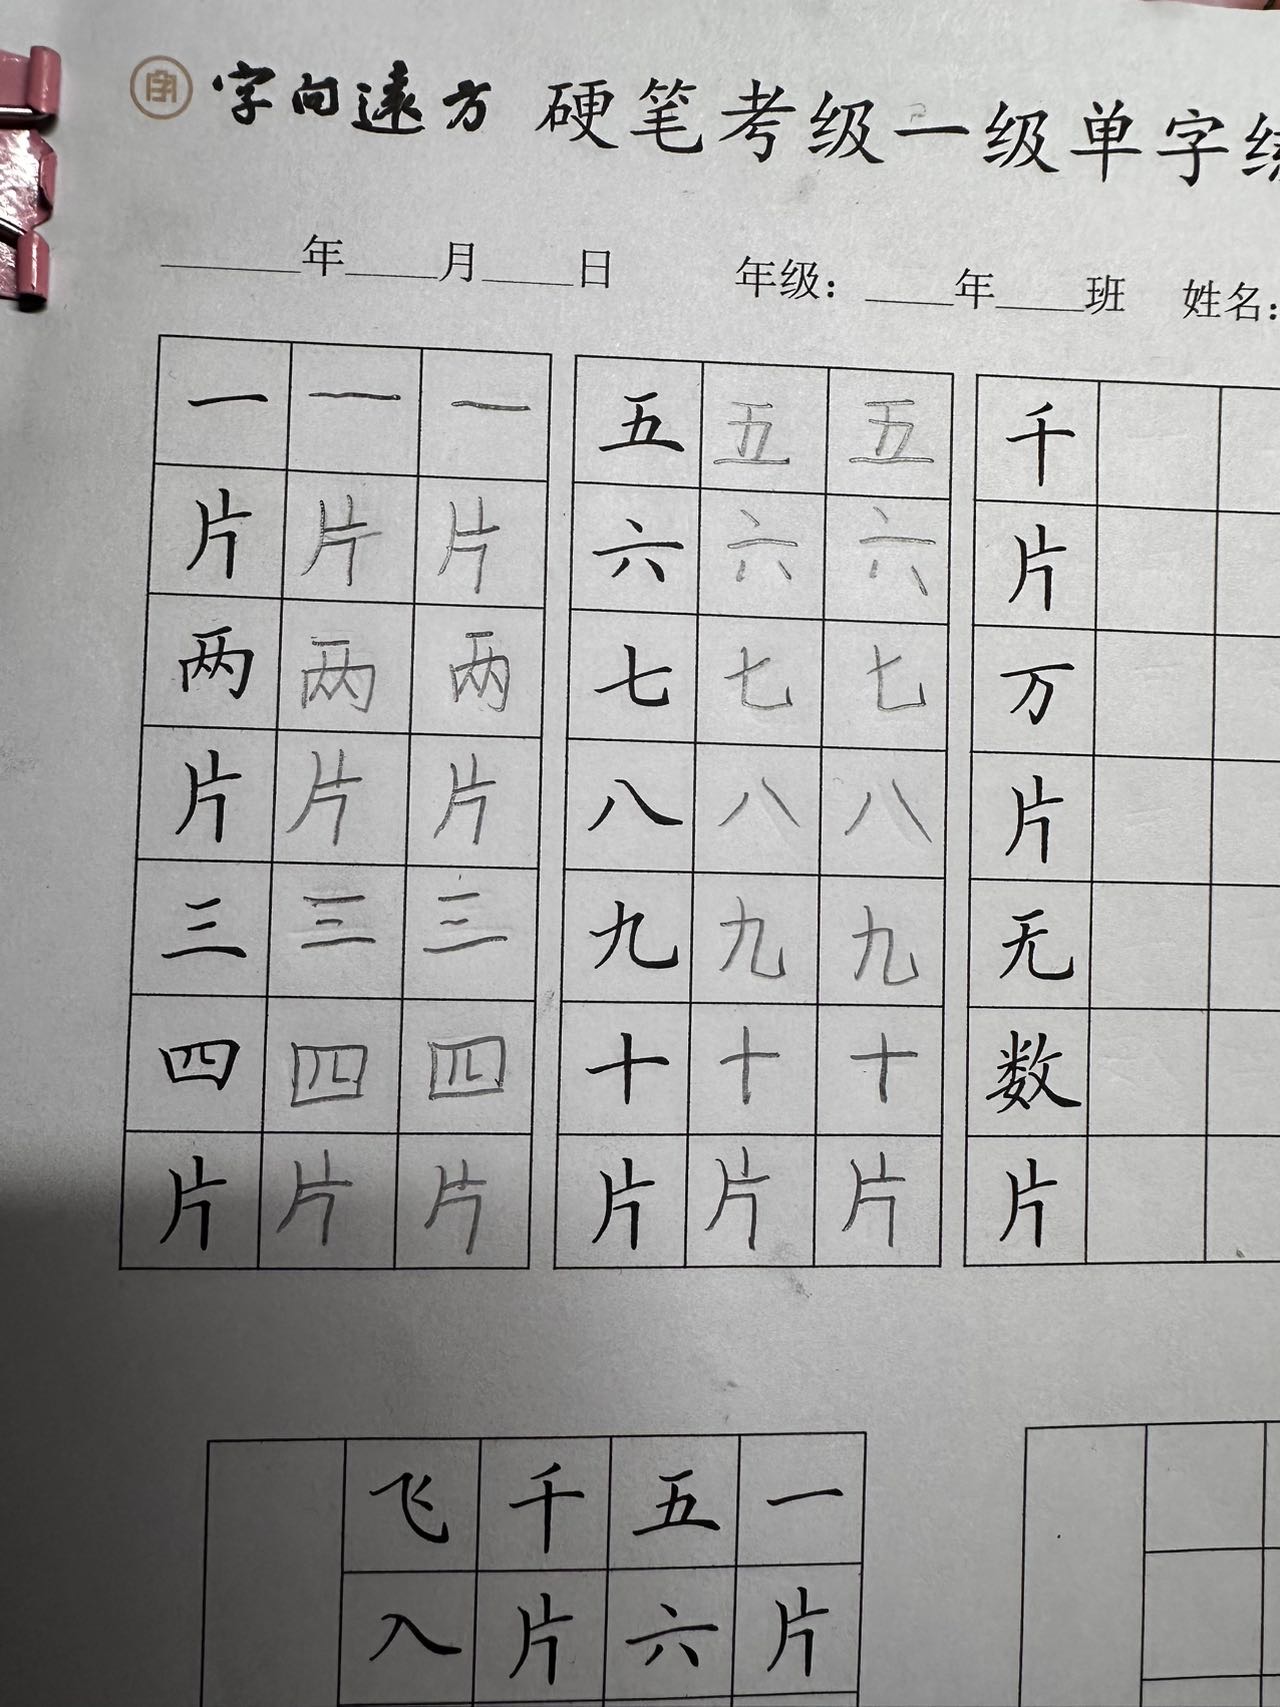 字向遠方 硬笔考级一级单字
年 月 日 年级： 年 班 姓名：
一 一 一 五 五 五 千
片 片 片 六 六 六 片
两 两 两 七 七 七 万
片 片 片 八 八 八 片
三 三 三 九 九 九 无
四 四 四 十 十 十 数
片 片 片 片 片 片 片
飞 千 五 一
入 片 六 片